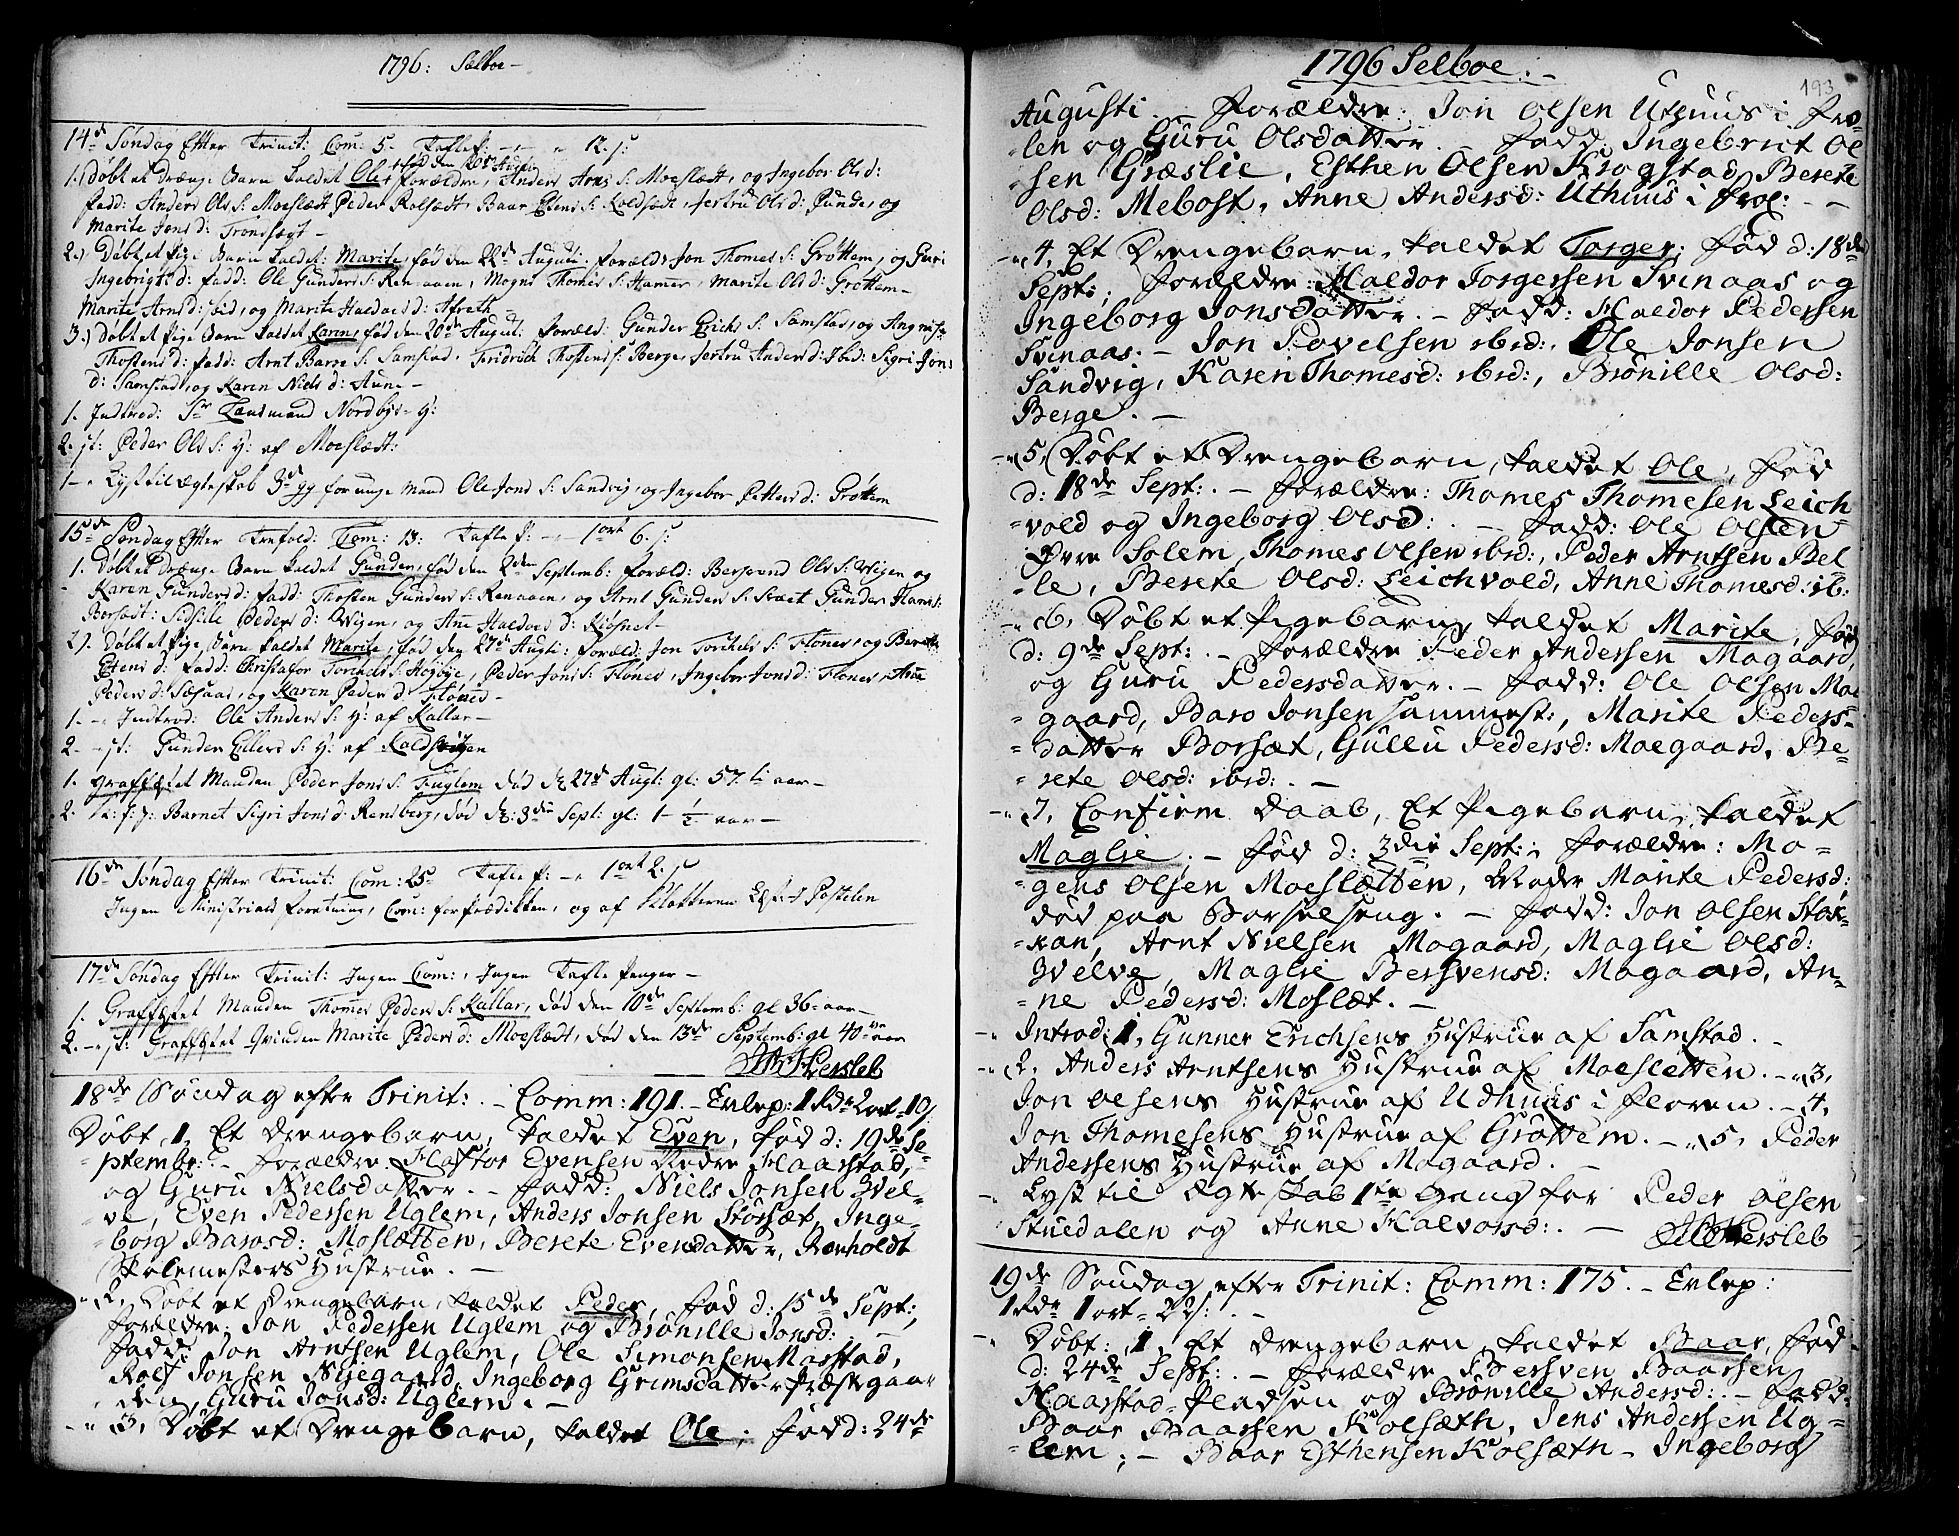 1796: Selboe –
14de Søndag Efter Trinit: Com: 5. Taflep: –,– " 12. s:
1.) Døbt et Drænge Barn kaldet Ole, fød den 20de Aug: forældre, Anders Arns S: Moeslætt, og Ingebor Ols d:
fadd: Anders Ols S: Moeslætt Peder Kolsætt, Baar Estens S: Kolsætt, Jertru Ols d: Punde, og
Marite Jons d: Trondsæt –
2.) Døbt et Pige Barn kaldet: Marite, fød den 22de Augusti. foræld: Jon Thomes S: Grøttem, og Guri
Ingebrigts d: fadd: Ole Gunders S: Renaaen, Mogns Thomes S: Hamer, Marite Ols d: Grøttem –
Marite Arns d: ibid, og Marite Haldors d: Aftreth
3.) Døbt et Pige Barn kaldet Karen, fød den 20de August: foræld: Gunder Erichs S: Samstad, og Angnise
Thostens d: fadd: Arnt Barre S: Samstad, Fridrich Thostens S: Berge, Jertru Anders d: Ibid: Sigri Jons
d: Samstad, og Karen Niels d: Aune –
1. Indtrod: Sr Landmand Nordbye H:
2. st: Peder Ols S: H: af Moeslætt:
1 –" Lyst til ægteskab 3de gg for unge Mand Ole Jons S: Sandvig, og Ingebor Petters d: Grøttem
15de Søndag Efter Trefold: Com: 13: Tafle p: –,– 1 ort 6. s:
1. Døbt et Drænge Barn kaldet Gunder, fød den 2den Septemb: foræld: Bersvend Ols S: Wigen og
Karen Gunders d: fadd: Thosten Gunders S: Renaaen, og Arnt Gunders S: Slæt Gunder Hans S:
Borsæt: Sidsele Peders d: Wigen, og Ane Haldors d: Kiosnet –
2.) Døbt et Pige Barn kaldet Marite, fød den 27de Augti: foræld: Jon Torchels S: Flones, og Berette
Estens d: fadd: Christafor Torchels S: Høgbye, Peder Jons S: Flones, Ingebor Jons d: Flones, Ane
Peders d: Sæsaas, og Karen Peders d: Flønes –
1. –" Indtrod: Ole Anders S: H: af Kallar –
2. –" st: Gunder Ellevs S: H: af Koldsvigen
1. Graffæstet Manden Peder Jons S: Fuglem død d: 27de Augt: gl: 57. ti aar –
2. st: s: Barnet Sigri Jons d: Rensberg, død d: 3die Sept: gl: 1 – ½ – aar –
16de Søndag Efter Trinit: Com: 25. Tafle p: –" 1 ort 2. s:
Ingen Ministrial foretning, Com: for prædiken, og af Klokkeren Læst Postelen
17de Søndag Efter Trinit: Ingen Com:, Ingen Tafle Penger –
1. Graffæstet Manden Thomes Peders S: Kallar, død den 10de Septemb: gl 36. aar –
2. – st: Graffæstet Qvinden Marite Peders d: Moeslædt, død den 13de Septemb: gl 40 aar
Hersleb
18de Søndag efter Trinit: – Comm: 191. – Erlep: 1 Rdr 2 ort – 10 s:
Døbt 1, Et Drengebarn, kaldet Even, fød d: 19de Se-
ptembr: – forældre: Haftor Evensen Nedre Haarstad,
og Guru Nielsdatter. – fadd: Niels Jonsen Zvel-
ve, Even Pedersen Uglem, Anders Jonsen Storsæt, Inge-
borg Barosd: Moslætten, Berete Evensdatter, Ronholdt
Skolemesters Hustrue. –
2, Døbt et Drengebarn, kaldet Peder, fød d: 15de Sept:,
forældre: Jon Pedersen Uglem og Brønille Jonsd: –
fadd: Jon Arntsen Uglem, Ole Simonsen Marstad,
Rolf Jonsen Nijegaard, Ingeborg Grimsdatter Præstgaar-
den, Guru Jonsd: Uglem. –
– 3, Døbt et Drengebarn, kaldet Ole, fødd: 24de
1796 Selboe. –
193
Augusti. – forældre: Jon Olsen Uthuus i Flo-
len og Guru Olsdatter. – fadd: Ingebrict Ol-
sen Græslie, Esthen Olsen Krogstad, Berete
Olsd: Mebost, Anne Andersd: Uthuus i Flol: –
4, Et Drengebarn, kaldet Torger, fød d: 18de
Sept:, forældre: Haldor Torgersen Svinaas og
Ingeborg Jonsdatter. – fadd: Haldor Pedersen
Svinaas. – Jon Povelsen ibid:, Ole Jonsen
Sandvig, Karen Thomesd: ibid:, Brønille Olsd:
Berge. –
5, Døbt et Drengebarn, kaldet Ole, fød
d: 18de Sept:. – forældre: Thomes Thomesen Leich
vold og Ingeborg Olsd: – fadd: Ole Olsen
Øvre Solem, Thomes Olsen ibid:, Peder Arntsen Bel-
le, Berete Olsd: Leichvold, Anne Thomesd: ib:
6, Døbt et Pigebarn, kaldet Marite, fød
d: 9de Sept:. – forældre Peder Andersen Mogaard,
og Guru Pedersdatter. – fadd: Ole Olsen Moe
gaard, Baro Jonsen sammest:, Marite Peders-
datter Borsæt, Gullu Pedersd: Moegaard, Be-
rete Olsd: ibid: –
7, Confirm Daab, Et Pigebarn, kaldet
Maglie. – fød d: 3die Sept:, forældre: Mo-
gens Olsen Moeslætten, Moder Marite Pedersd:,
død paa Barselseng. – fadd: Jon Olsen Stok-
kan, Arnt Nielsen Mogaard, Maglie Olsd:
Zvelve, Maglie Bersvensd: Mogaard, An-
ne Pedersd: Moslæt. –
Introd: 1, Gunner Erichsens Hustrue af Samstad. –
2, Anders Arntsens Hustrue af Moeslætten. – 3,
Jon Olsens Hustrue af Udhuus i Floren. – 4,
Jon Thomesens Hustrue af Grøttem. – 5, Peder
Andersens Hustrue af Mogaard. –
Lyst til Ægteskab 1ste Gang for Peder Olsen
Stuedalen og Anne Halvorsd: –
Hersleb
19de Søndag efter Trinit: Comm: 175. – Erlep:
1 Rdr 1 ort – 22 s: –
Døbt: 1, Et Drengebarn, kaldet Baar, fød
d: 24de Sept:. – forældre Bersven Baarsen
Haarstad-Pladsen og Brønille Andersd: – fadd:
Baar Baarsen Kolsæth, Jens Andersen Ug-
lem, – Baar Esthensen Kolsæth – Ingeborg